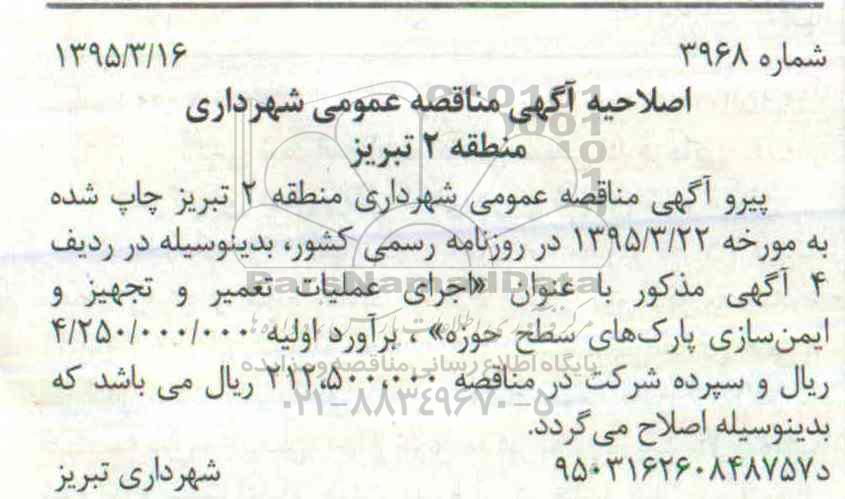 شماره ۳۹۶۸ ۱۳۹۵/۳/۱۶
اصلاحیه آگهی مناقصه عمومی شهرداری
منطقه ۲ تبریز
پیرو آگهی مناقصه عمومی شهرداری منطقه ۲ تبریز چاپ شده
به مورخه ۱۳۹۵/۳/۲۲ در روزنامه رسمی کشور، بدینوسیله در ردیف
۴ آگهی مذکور با عنوان «اجرای عملیات تعمیر و تجهیز و
ParsNamadData
ایمن‌سازی پارک‌های سطح حوزه» ، برآورد اولیه ۴/۲۵۰/۰۰۰/۰۰۰
پایگاه اطلاع رسانی مناقصه و مزایده
ریال و سپرده شرکت در مناقصه ۲۱۲،۵۰۰،۰۰۰ ریال می باشد که
۰۲۱-۸۸۳۴۹۶۷۰-۵
بدینوسیله اصلاح می گردد.
د۹۵۰۳۱۶۲۶۰۸۴۸۷۵۷ شهرداری تبریز